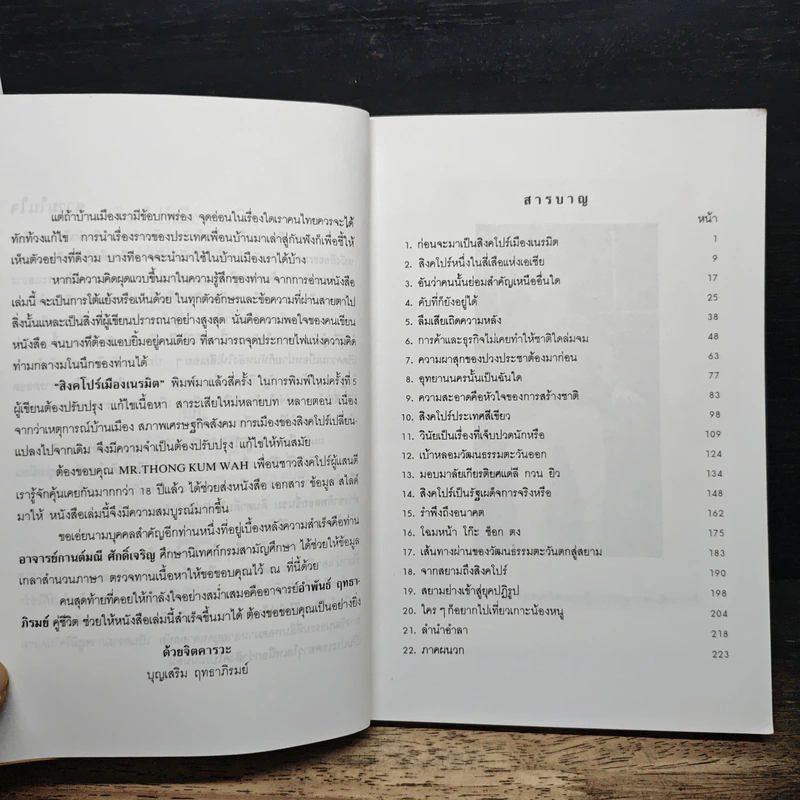 แต่ถ้าบ้านเมืองเรามีข้อบกพร่อง จุดอ่อนในเรื่องใดเราคนไทยควรจะได้
ทักท้วงแก้ไข การนำเรื่องราวของประเทศเพื่อนบ้านมาเล่าสู่กันฟังก็เพื่อชี้ให้
เห็นตัวอย่างที่ดีงาม บางทีอาจจะนำมาใช้ในบ้านเมืองเราได้บ้าง
หากมีความคิดผุดแวบขึ้นมาในความรู้สึกของท่าน จากการอ่านหนังสือ
เล่มนี้ จะเป็นการโต้แย้งหรือเห็นด้วย ในทุกตัวอักษรและข้อความที่ผ่านสายตาไป
สิ่งนั้นแหละเป็นสิ่งที่ผู้เขียนปรารถนาอย่างสูงสุด นั่นคือความพอใจของคนเขียน
หนังสือ จนบางทีต้องแอบยิ้มอยู่คนเดียว ที่สามารถจุดประกายไฟแห่งความคิด
ท่ามกลางมโนนึกของท่านได้
"สิงคโปร์เมืองเนรมิต" พิมพ์มาแล้วสี่ครั้ง ในการพิมพ์ใหม่ครั้งที่ 5
ผู้เขียนต้องปรับปรุง แก้ไขเนื้อหา สาระเสียใหม่หลายบท หลายตอน เนื่อง
จากว่าเหตุการณ์บ้านเมือง สภาพเศรษฐกิจสังคม การเมืองของสิงคโปร์เปลี่ยน-
แปลงไปจากเดิม จึงมีความจำเป็นต้องปรับปรุง แก้ไขให้ทันสมัย
ต้องขอบคุณ MR.THONG KUM WAH เพื่อนชาวสิงคโปร์ผู้แสนดี
เรารู้จักคุ้นเคยกันมากกว่า 18 ปีแล้ว ได้ช่วยส่งหนังสือ เอกสาร ข้อมูล สไลด์
มาให้ หนังสือเล่มนี้จึงมีความสมบูรณ์มากขึ้น
ขอเอ่ยนามบุคคลสำคัญอีกท่านหนึ่งที่อยู่เบื้องหลังความสำเร็จคือท่าน
อาจารย์กานต์มณี ศักดิ์เจริญ ศึกษานิเทศก์กรมสามัญศึกษา ได้ช่วยให้ข้อมูล
เกลาสำนวนภาษา ตรวจทานเนื้อหาให้ขอขอบคุณไว้ ณ ที่นี้ด้วย
คนสุดท้ายที่คอยให้กำลังใจอย่างสม่ำเสมอคืออาจารย์อำพันธ์ ฤทธา-
ภิรมย์ คู่ชีวิต ช่วยให้หนังสือเล่มนี้สำเร็จขึ้นมาได้ ต้องขอขอบคุณเป็นอย่างยิ่ง
ด้วยจิตคารวะ
บุญเสริม ฤทธาภิรมย์
สารบาญ
หน้า
1. ก่อนจะมาเป็นสิงคโปร์เมืองเนรมิต 1
2. สิงคโปร์หนึ่งในสี่เสือแห่งเอเซีย 9
3. อันว่าคนนั้นย่อมสำคัญเหนืออื่นใด 17
4. คับที่ก็ยังอยู่ได้ 25
5. ลืมเสียเถิดความหลัง 38
6. การค้าและธุรกิจไม่เคยทำให้ชาติใดล่มจม 48
7. ความผาสุกของปวงประชาต้องมาก่อน 63
8. อุทยานนครนั้นเป็นฉันใด 77
9. ความสะอาดคือหัวใจของการสร้างชาติ 83
10. สิงคโปร์ประเทศสีเขียว 98
11. วินัยเป็นเรื่องที่เจ็บปวดนักหรือ 109
12. เบ้าหลอมวัฒนธรรมตะวันออก 124
13. มอบมาลัยเกียรติยศแด่ลี กวน ยิว 134
14. สิงคโปร์เป็นรัฐเผด็จการจริงหรือ 148
15. รำพึงถึงอนาคต 162
16. โฉมหน้า โก๊ะ ช็อก ตง 175
17. เส้นทางผ่านของวัฒนธรรมตะวันตกสู่สยาม 183
18. จากสยามถึงสิงคโปร์ 190
19. สยามย่างเข้าสู่ยุคปฏิรูป 198
20. ใคร ๆ ก็อยากไปเที่ยวเกาะน้องหนู 204
21. ลำนำอำลา 218
22. ภาคผนวก 223